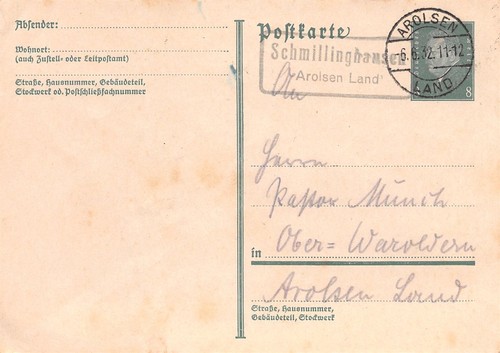 Absender:
Wohnort:
(auch Zustell- oder Leitpostamt)
Straße, Hausnummer, Gebäudeteil,
Stockwerk od. Postschließfachnummer
Postkarte
Schmillinghausen
"Arolsen Land"
AROLSEN
6.6.32.11-12
LAND
8
An
Herrn
Pastor Münch
in Ober=Waroldern
Arolsen Land
Straße, Hausnummer,
Gebäudeteil, Stockwerk